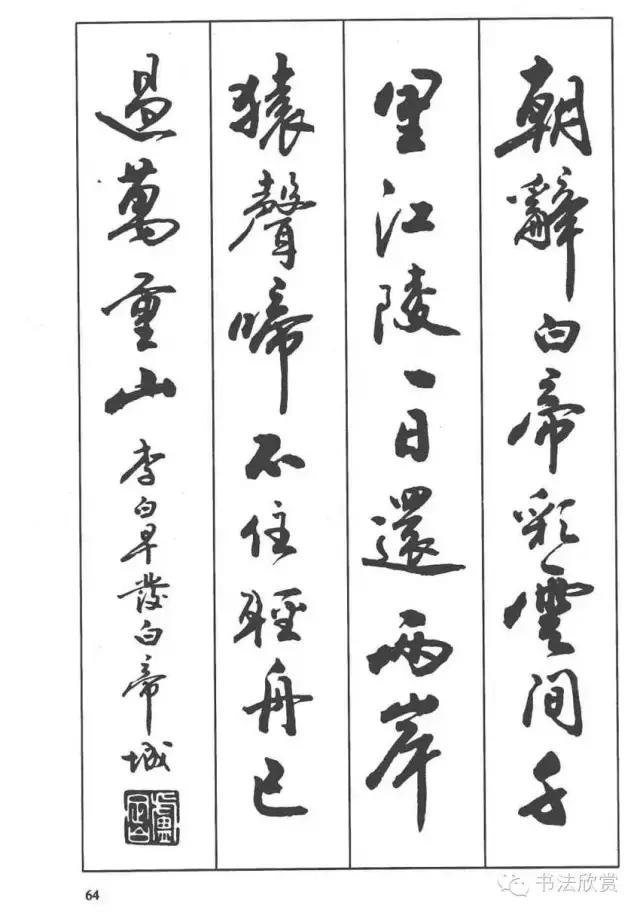 朝辭白帝彩雲間千
里江陵一日還兩岸
猿聲啼不住輕舟已
過萬重山 李白早發白帝城
64
书法欣赏